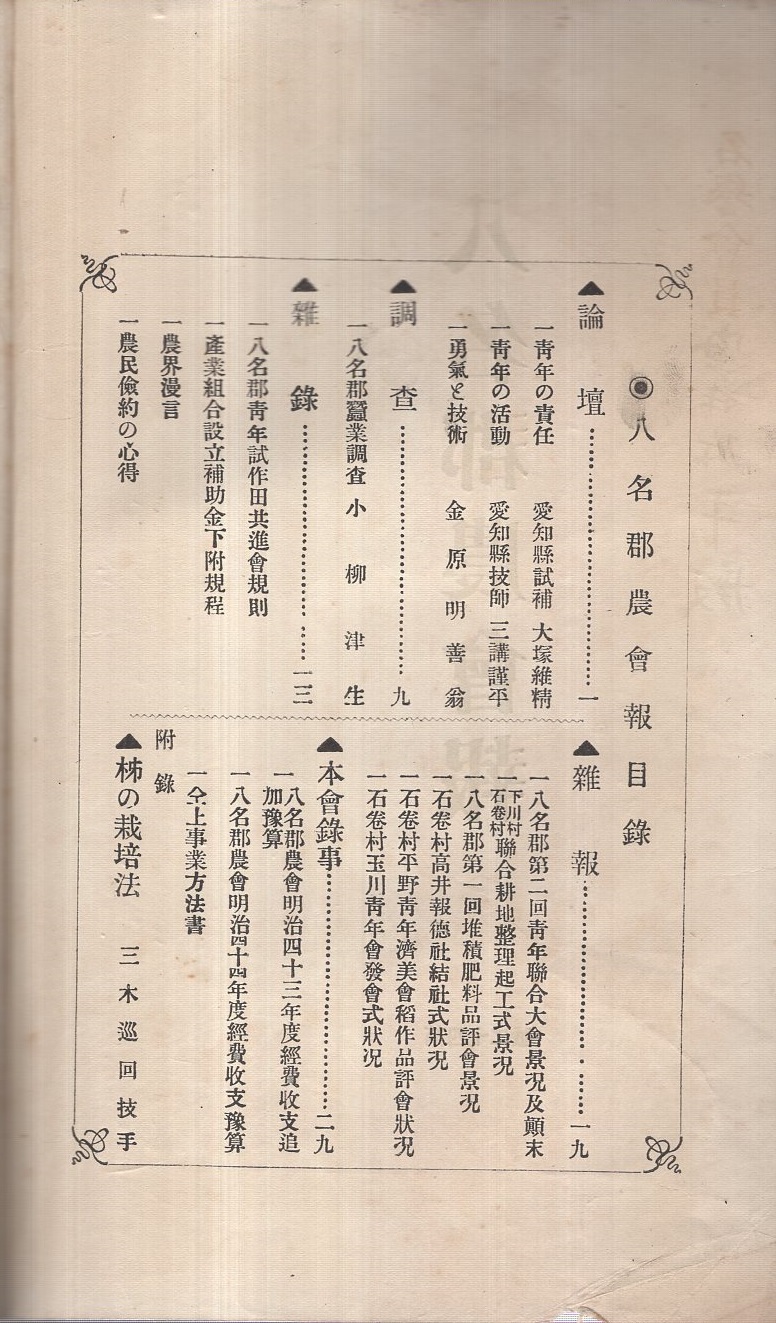 ◉八名郡農會報目錄
▲論壇……………………一
一青年の責任 愛知縣試補 大塚維精
一青年の活動 愛知縣技師 三講謹平
一勇氣と技術 金原明善翁
▲調査……………………九
一八名郡蠶業調査 小柳津生
▲雜錄……………………一三
一八名郡青年試作田共進會規則
一產業組合設立補助金下附規程
一農界漫言
一農民儉約の心得
▲雜報……………………一九
一八名郡第二回青年聯合大會景况及顛末
一下川村石卷村聯合耕地整理起工式景况
一八名郡第一回堆積肥料品評會景况
一石卷村高井報德社結社式狀况
一石卷村平野青年濟美會稻作品評會狀况
一石卷村玉川青年會發會式狀况
▲本會錄事……………………二九
一八名郡農會明治四十三年度經費收支追加豫算
一八名郡農會明治四十四年度經費收支豫算
一仝上事業方法書
附錄
▲柿の栽培法 三木巡回技手